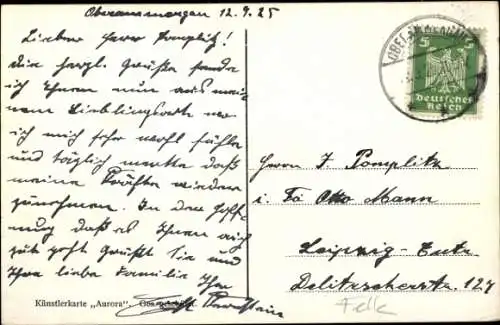 Oberammergau 12.9.25
Lieber Herr Pomplitz!
Die herzl. Grüße sende
ich Ihnen nun aus mei-
nem Lieblingsorte wo
ich mich sehr wohl fühle
und täglich merke daß
meine Kräfte wieder
zunehmen. In der Hoff-
nung daß es Ihnen auch
gut geht Grüßt Sie und
Ihre liebe Familie Ihr
Künstlerkarte „Aurora“.
5 5
Deutsches
Reich
Herrn J. Pomplitz
i. Fa Otto Mann
Leipzig-Eutr.
Delitzscherstr. 127